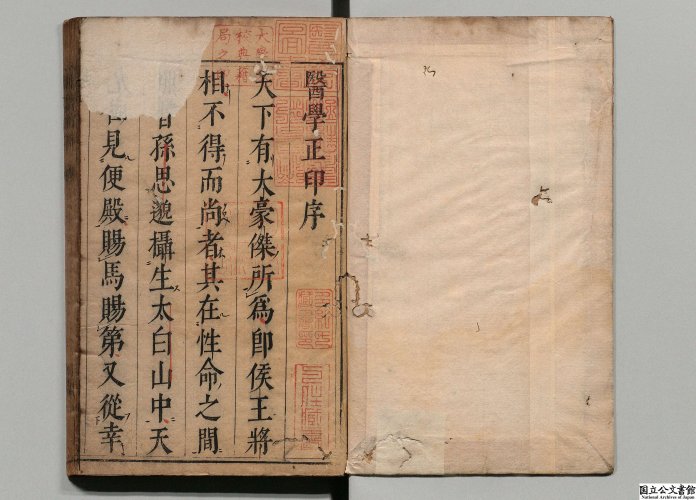 醫學正印序
天下有大豪傑所為即侯王將
相不得而尚者其在性命之間
昔孫思邈攝生太白山中天
見便殿賜馬賜第又從幸
国立公文書館
National Archives of Japan